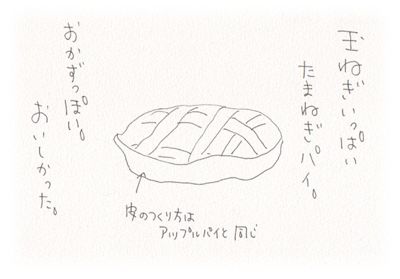 玉ねぎいっぱい
たまねぎパイ。
おかずっぽい。
おいしかった。
皮のつくり方は
アップルパイと同じ